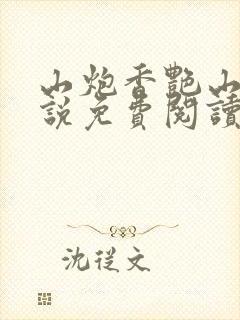 山炮香艷山
說免費閱讀
沈從文